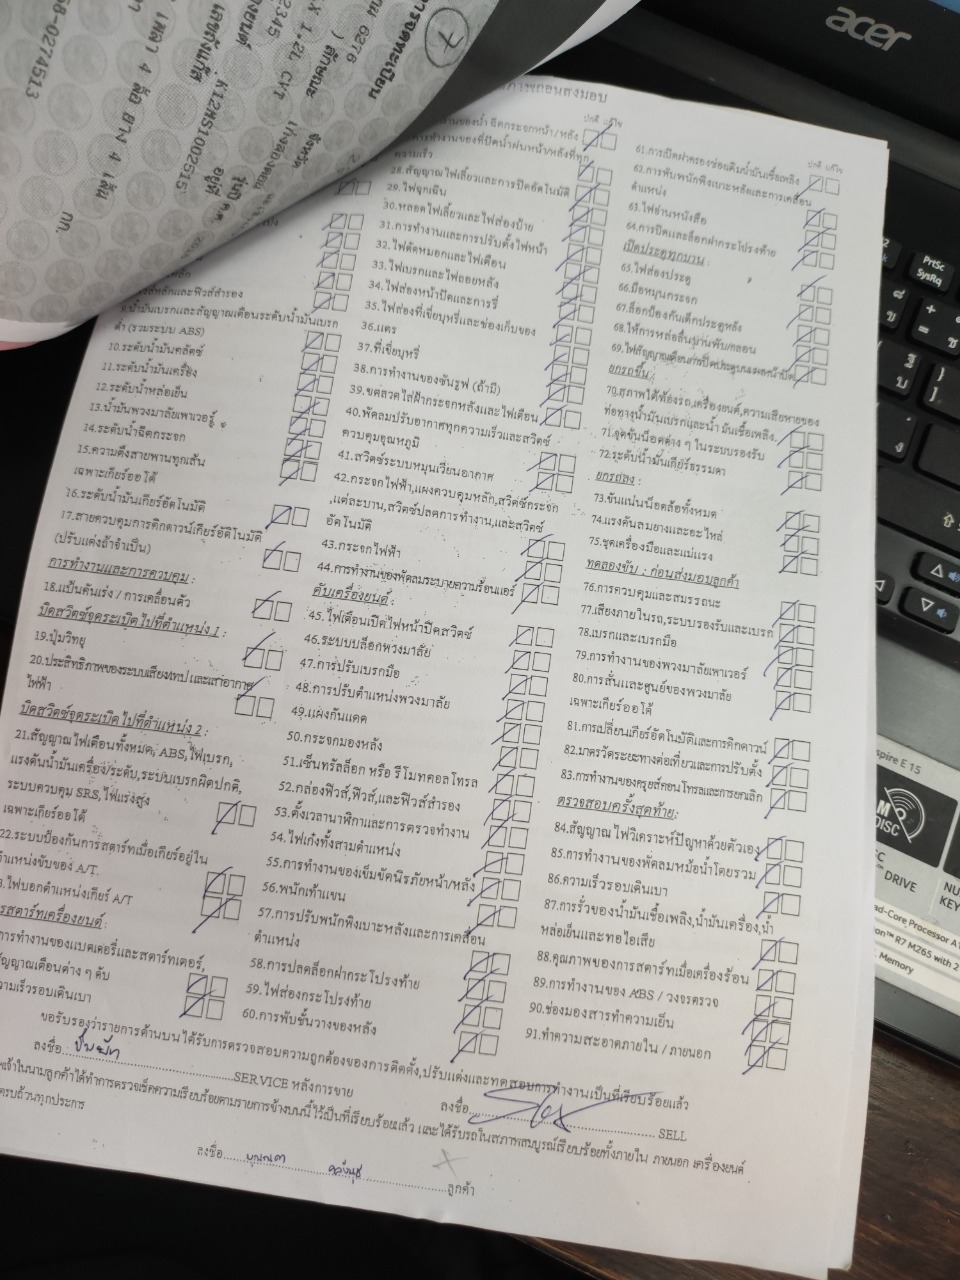 acer
การจดทะเบียน
7
6276
ลักษณะ
X 1.2L CVT
2345
จังหวัด
K12MS1002515
เพลา 4 ล้อ ยาง 4 เส้น
กก.
58-0274513
ปกติ แก้ไข
ความเร็ว
28.สัญญาณไฟเลี้ยวและการปิดอัตโนมัติ
29.ไฟฉุกเฉิน
30.หลอดไฟเลี้ยวและไฟส่องป้าย
31.การทำงานและการปรับตั้งไฟหน้า
32.ไฟตัดหมอกและไฟเตือน
33.ไฟเบรกและไฟถอยหลัง
34.ไฟส่องหน้าปัดและการหรี่
35.ไฟส่องที่เขี่ยบุหรี่และช่องเก็บของ
36.แตร
37.ที่เขี่ยบุหรี่
38.การทำงานของซันรูฟ (ถ้ามี)
39.ขดลวดไล่ฝ้ากระจกหลังและไฟเตือน
40.พัดลมปรับอากาศทุกความเร็วและสวิตซ์
ควบคุมอุณหภูมิ
41.สวิตซ์ระบบหมุนเวียนอากาศ
42.กระจกไฟฟ้า,แผงควบคุมหลัก,สวิตซ์กระจก
แต่ละบาน,สวิตซ์ปลดการทำงาน,และสวิตซ์
อัตโนมัติ
43.กระจกไฟฟ้า
44.การทำงานของพัดลมระบายความร้อนแอร์
ดับเครื่องยนต์ :
45.ไฟเตือนเปิดไฟหน้าปิดสวิตซ์
46.ระบบบล็อกพวงมาลัย
47.การปรับเบรกมือ
48.การปรับตำแหน่งพวงมาลัย
49.แผงกันแดด
50.กระจกมองหลัง
51.เซ็นทรัลล็อก หรือ รีโมทคอลโทรล
52.กล่องฟิวส์,ฟิวส์,และฟิวส์สำรอง
53.ตั้งเวลานาฬิกาและการตรวจทำงาน
54.ไฟเก๋งทั้งสามตำแหน่ง
55.การทำงานของเข็มขัดนิรภัยหน้า/หลัง
56.พนักเท้าแขน
57.การปรับพนักพิงเบาะหลังและการเคลื่อน
ตำแหน่ง
58.การปลดล็อกฝากระโปรงท้าย
59.ไฟส่องกระโปรงท้าย
60.การพับชั้นวางของหลัง
ปกติ แก้ไข
61.การเปิดฝาครอบช่องเติมน้ำมันเชื้อเพลิง
62.การพับพนักพิงเบาะหลังและการเคลื่อน
ตำแหน่ง
63.ไฟอ่านหนังสือ
64.การปิดและล็อกฝากระโปรงท้าย
เปิดประตูทุกบาน :
65.ไฟส่องประตู
66.มือหมุนกระจก
67.ล็อกป้องกันเด็กประตูหลัง
68.ให้การหล่อลื่นบานพับ/กลอน
ยกรถขึ้น :
70.สภาพใต้ท้องรถ,เครื่องยนต์,ความเสียหายของ
ท่อทางน้ำมันเบรกและน้ำมันเชื้อเพลิง
71.จุดขันน็อตต่าง ๆ ในระบบรองรับ
72.ระดับน้ำมันเกียร์ธรรมดา
ยกรถลง :
73.ขันแน่นน็อตล้อทั้งหมด
74.แรงดันลมยางและอะไหล่
75.ชุดเครื่องมือและแม่แรง
ทดลองขับ : ก่อนส่งมอบลูกค้า
76.การควบคุมและสมรรถนะ
77.เสียงภายในรถ,ระบบรองรับและเบรก
78.เบรกและเบรกมือ
79.การทำงานของพวงมาลัยเพาเวอร์
80.การสั่นและศูนย์ของพวงมาลัย
เฉพาะเกียร์ออโต้
81.การเปลี่ยนเกียร์อัตโนมัติและการคิกดาวน์
82.มาตรวัดระยะทางต่อเที่ยวและการปรับตั้ง
83.การทำงานของครุยส์คอนโทรลและการยกเลิก
ตรวจสอบครั้งสุดท้าย:
84.สัญญาณไฟวิเคราะห์ปัญหาด้วยตัวเอง
85.การทำงานของพัดลมหม้อน้ำโดยรวม
86.ความเร็วรอบเดินเบา
87.การรั่วของน้ำมันเชื้อเพลิง,น้ำมันเครื่อง,น้ำ
หล่อเย็นและทอไอเสีย
88.คุณภาพของการสตาร์ทเมื่อเครื่องร้อน
89.การทำงานของ ABS / วงจรตรวจ
90.ช่องมองสารทำความเย็น
91.ทำความสะอาดภายใน / ภายนอก
9.น้ำมันเบรกและสัญญาณเตือนระดับน้ำมันเบรก
ต่ำ (รวมระบบ ABS)
10.ระดับน้ำมันคลัตซ์
11.ระดับน้ำมันเครื่อง
12.ระดับน้ำหล่อเย็น
13.น้ำมันพวงมาลัยพาเวอร์
14.ระดับน้ำฉีดกระจก
15.ความตึงสายพานทุกเส้น
เฉพาะเกียร์ออโต้
16.ระดับน้ำมันเกียร์อัตโนมัติ
17.สายควบคุมการคิกดาวน์เกียร์อัติโนมัติ
(ปรับแต่งถ้าจำเป็น)
การทำงานและการควบคุม :
18.แป้นคันเร่ง / การเคลื่อนตัว
บิดสวิตซ์จุดระเบิดไปที่ตำแหน่ง 1 :
19.ปุ่มวิทยุ
20.ประสิทธิภาพของระบบเสียงเทป และเสาอากาศ
ไฟฟ้า
บิดสวิตซ์จุดระเบิดไปที่ตำแหน่ง 2 :
21.สัญญาณไฟเตือนทั้งหมด, ABS,ไฟเบรก,
แรงดันน้ำมันเครื่อง/ระดับ,ระบบเบรกผิดปกติ,
ระบบควบคุม SRS,ไฟแรงสูง
เฉพาะเกียร์ออโต้
22.ระบบป้องกันการสตาร์ทเมื่อเกียร์อยู่ใน
ตำแหน่งขับของ A/T.
ไฟบอกตำแหน่งเกียร์ A/T
รสตาร์ทเครื่องยนต์ :
การทำงานของแบตเตอรี่และสตาร์ทเตอร์,
สัญญาณเตือนต่าง ๆ ดับ
วามเร็วรอบเดินเบา
ขอรับรองว่ารายการด้านบนได้รับการตรวจสอบความถูกต้องของการติดตั้ง,ปรับแต่งและทดสอบการทำงานเป็นที่เรียบร้อยแล้ว
ลงชื่อ SERVICE หลังการขาย
ลงชื่อ SELL
พเจ้าในนามลูกค้าได้ทำการตรวจเช็คความเรียบร้อยตามรายการข้างบนนี้ไว้เป็นที่เรียบร้อยแล้ว และได้รับรถในสภาพสมบูรณ์เรียบร้อยทั้งภายใน ภายนอก เครื่องยนต์
ครบถ้วนทุกประการ
ลงชื่อ ลูกค้า
PrtSc
SysRq
spire E 15
DRIVE
Memory